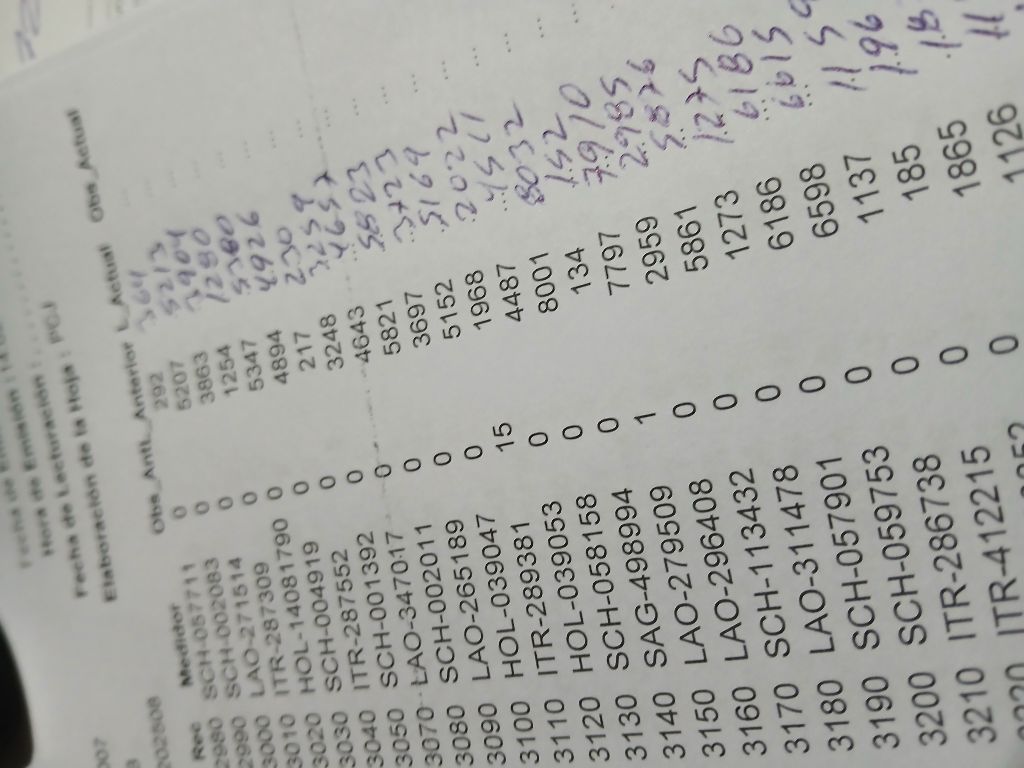 Hora de Emisión :
Fecha de Lecturación :
Elaboración de la Hoja : PCJ
007
3
202808
Rec Medidor Obs_Anti. L_Anterior L_Actual Obs_Actual
2980 SCH-057711 0 292 364 ...
2990 SCH-002083 0 5207 5213 ...
3000 LAO-271514 0 3863 3904 ...
3010 ITR-287309 0 1254 1280 ...
3020 HOL-14081790 0 5347 5380 ...
3030 SCH-004919 0 4894 4926 ...
3040 ITR-287552 0 217 230 ...
3050 SCH-001392 0 3248 3259 ...
3070 LAO-347017 0 4643 4657 ...
3080 SCH-002011 0 5821 5823 ...
3090 LAO-265189 0 3697 3723 ...
3100 HOL-039047 0 5152 5169 ...
3110 ITR-289381 15 1968 2022 ...
3120 HOL-039053 0 4487 4511
3130 SCH-058158 0 8001 8032
3140 SAG-498994 0 134 152
3150 LAO-279509 1 7797 7910
3160 LAO-296408 0 2959 2985
3170 SCH-113432 0 5861 5876
3180 LAO-311478 0 1273 1275
3190 SCH-057901 0 6186 6186
3200 SCH-059753 0 6598 6615
3210 ITR-286738 0 1137 115
ITR-412215 0 185 196
0 1865 18
1126 11